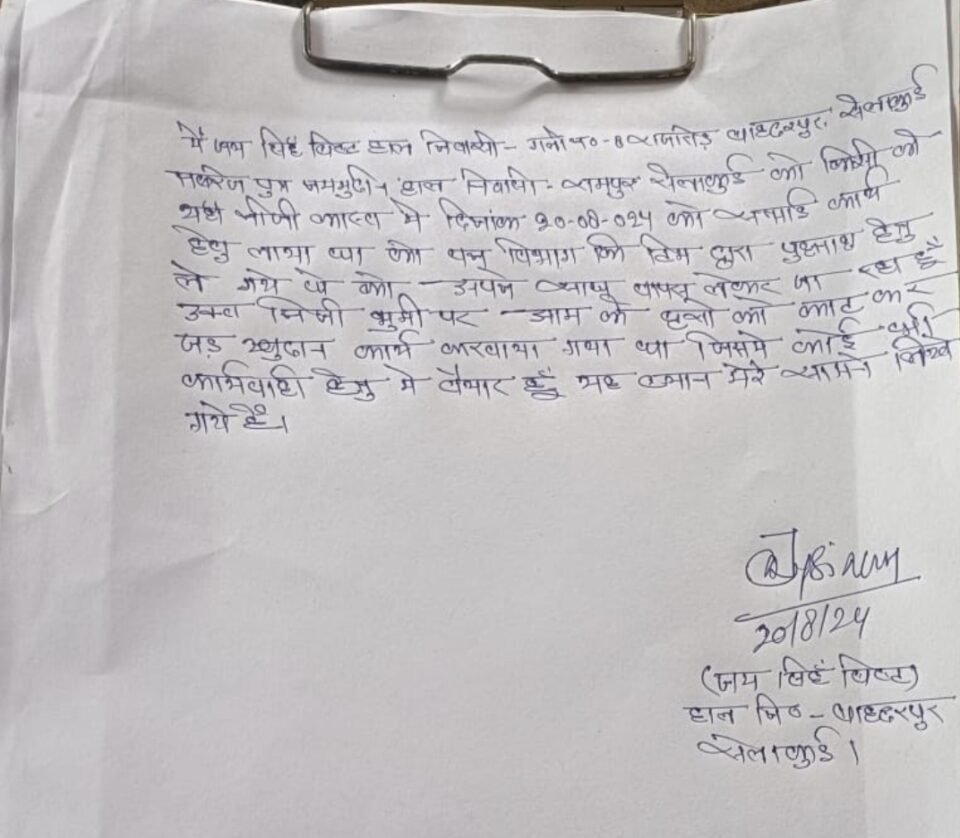 मैं जय सिहं बिष्ट हाल निवासी - गली न0 - 8 राजविहार बाहदरपुर, सेलाकुई
पुत्र हाल निवासी - रामपुर सेलाकुई को किसी को
दिनांक 20-08-024 को सफाई कार्य
हेतु लाया था को वन विभाग कि टिम द्वारा पुछताछ हेतु
ले गये थे को अपने साथ वापस लेकर जा रहा हूँ
उक्त निजी भुमी पर आम के वृक्षो को काट कर
जड़ खुदान कार्य करवाया गया था जिसमे कोई भी
कार्यवाही हेतु मे तैयार हूँ यह बयान मेरे सामने लिखे
गये हैं।
20/8/24
(जय सिहं बिष्ट)
हाल नि0 - बाहदरपुर
सेलाकुई।